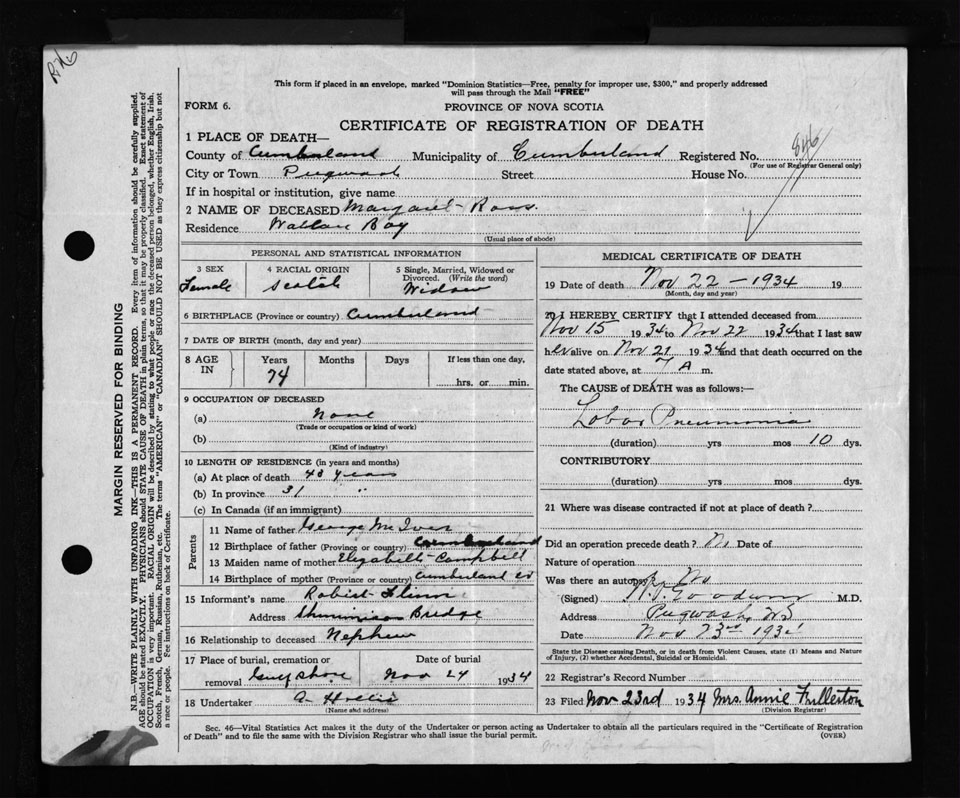 This form if placed in an envelope, marked "Dominion Statistics—Free, penalty for improper use, $300," and properly addressed
will pass through the Mail "FREE"
FORM 6.
PROVINCE OF NOVA SCOTIA
CERTIFICATE OF REGISTRATION OF DEATH
1 PLACE OF DEATH—
County of Cumberland Municipality of Cumberland Registered No. 846
(For use of Registrar General only)
City or Town Pugwash Street House No.
If in hospital or institution, give name
2 NAME OF DECEASED Margaret Ross.
Residence Wallace Bay
(Usual place of abode)
MARGIN RESERVED FOR BINDING
N.B.—WRITE PLAINLY WITH UNFADING INK—THIS IS A PERMANENT RECORD. Every item of information should be carefully supplied.
AGE should be stated EXACTLY. PHYSICIANS should STATE CAUSE OF DEATH in plain terms, so that it may be properly classified. Exact statement of
OCCUPATION is very important. RACIAL ORIGIN will be described by stating to what people or race the deceased person belonged, whether English, Irish,
Scotch, French, German, Russian, Ruthenian, etc. The terms "AMERICAN" or "CANADIAN" SHOULD NOT BE USED as they express citizenship but not
a race or people. See instructions on back of Certificate.
PERSONAL AND STATISTICAL INFORMATION
3 SEX
Female
4 RACIAL ORIGIN
Scotch
5 Single, Married, Widowed or
Divorced. (Write the word)
Widow
6 BIRTHPLACE (Province or country) Cumberland
7 DATE OF BIRTH (month, day and year)
8 AGE IN Years Months Days If less than one day,
74 hrs. or min.
9 OCCUPATION OF DECEASED
(a) None
(Trade or occupation or kind of work)
(b)
(Kind of industry)
10 LENGTH OF RESIDENCE (in years and months)
(a) At place of death 43 years
(b) In province 31 "
(c) In Canada (if an immigrant)
Parents
11 Name of father George McIver
12 Birthplace of father (Province or country) Cumberland
13 Maiden name of mother Elizabeth Campbell
14 Birthplace of mother (Province or country) Cumberland Co
15 Informant's name Robert
Address Shinimicas Bridge
16 Relationship to deceased Nephew
17 Place of burial, cremation or Date of burial
removal Gulf Shore Nov 24 1934
18 Undertaker A Hollis
(Name and address)
MEDICAL CERTIFICATE OF DEATH
19 Date of death Nov 22 — 1934 19
(Month, day and year)
20 I HEREBY CERTIFY that I attended deceased from
Nov 15 1934 to Nov 22 1934 that I last saw
her alive on Nov 21 1934 and that death occurred on the
date stated above, at 7 A m.
The CAUSE of DEATH was as follows:—
Lobar Pneumonia
(duration) yrs mos 10 dys.
CONTRIBUTORY
(duration) yrs mos dys.
21 Where was disease contracted if not at place of death?
Did an operation precede death? No Date of
Nature of operation
Was there an autopsy? No
(Signed) Goodwin M.D.
Address Pugwash, NS
Date Nov. 23rd 1934
State the Disease causing Death, or in death from Violent Causes, state (1) Means and
Nature of Injury, (2) whether Accidental, Suicidal or Homicidal.
22 Registrar's Record Number
23 Filed Nov 23rd 1934 Mrs. Annie Fullerton
(Division Registrar)
Sec. 46—Vital Statistics Act makes it the duty of the Undertaker or person acting as Undertaker to obtain all the particulars required in the "Certificate of Registration
of Death" and to file the same with the Division Registrar who shall issue the burial permit.
(OVER)